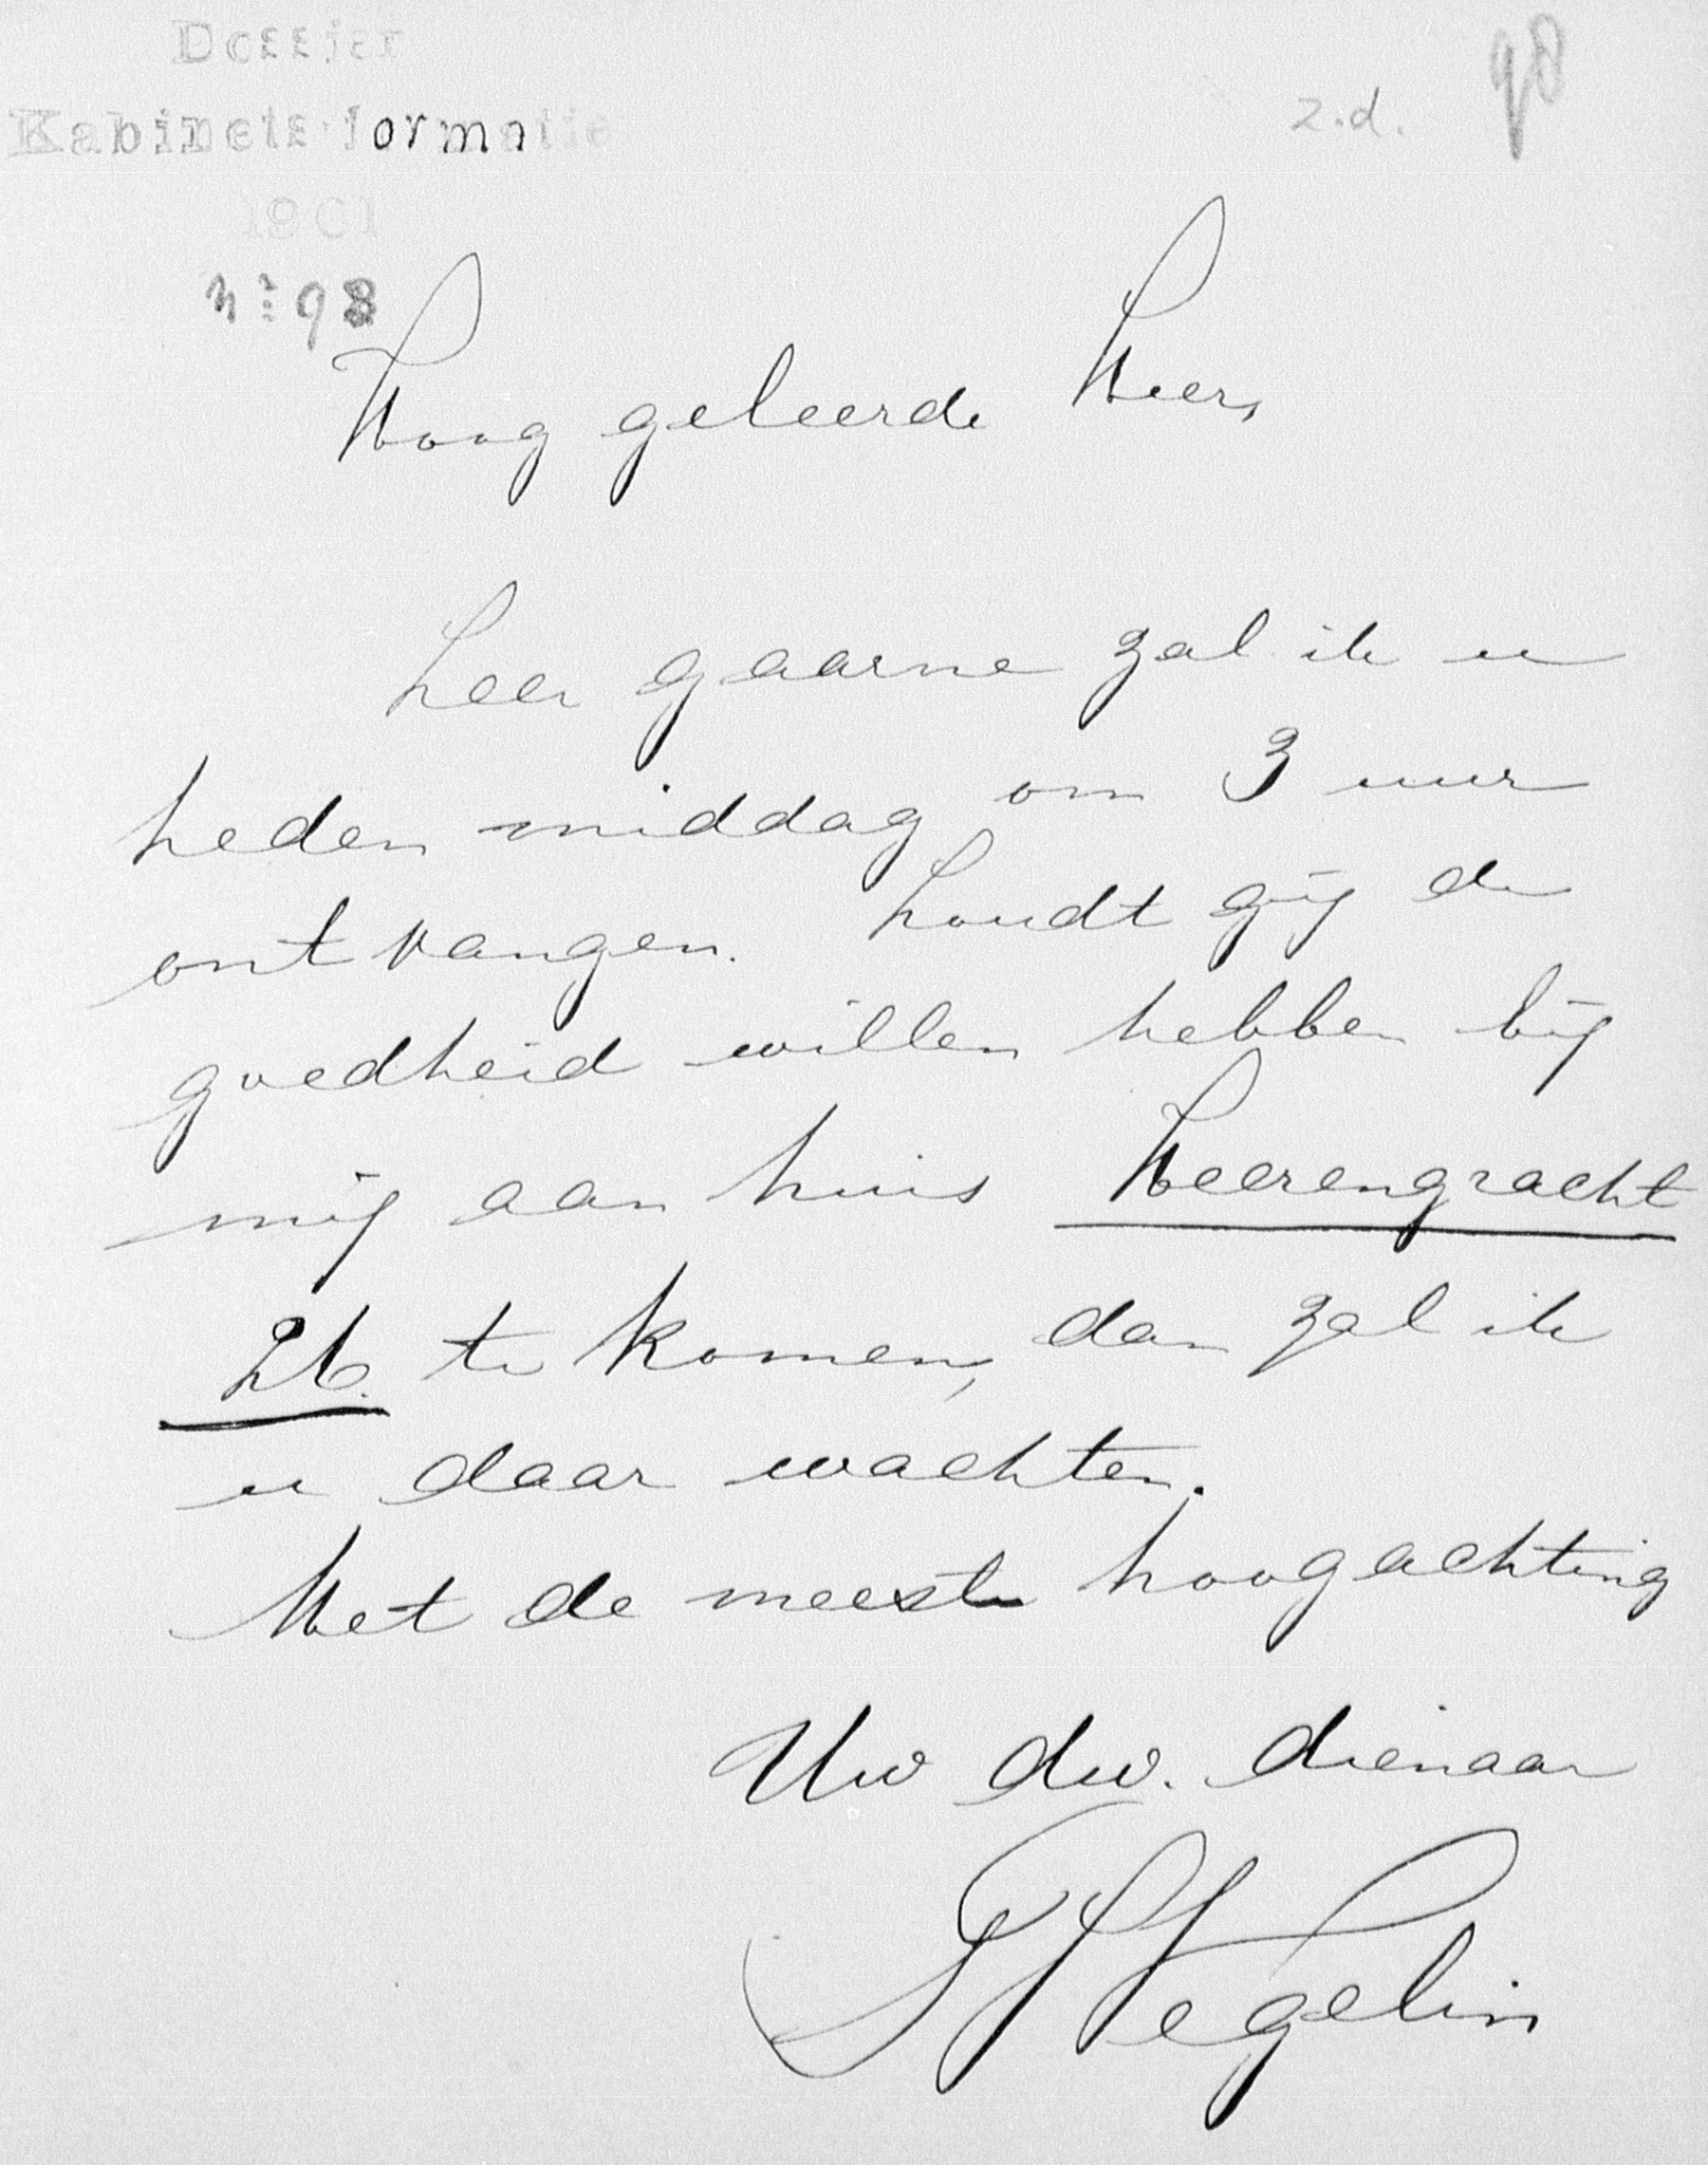 Dossier
Kabinetsformatie
1901
z.d. 98
no 98
Hoog geleerde Heer,
Zeer gaarne zal ik u
heden middag om 3 uur
ontvangen. Zoudt gij de
goedheid willen hebben bij
mij aan huis Heerengracht
26. te komen, dan zal ik
u daar wachten.
Met de meeste hoogachting
Uw dw. dienaar
Vegelin